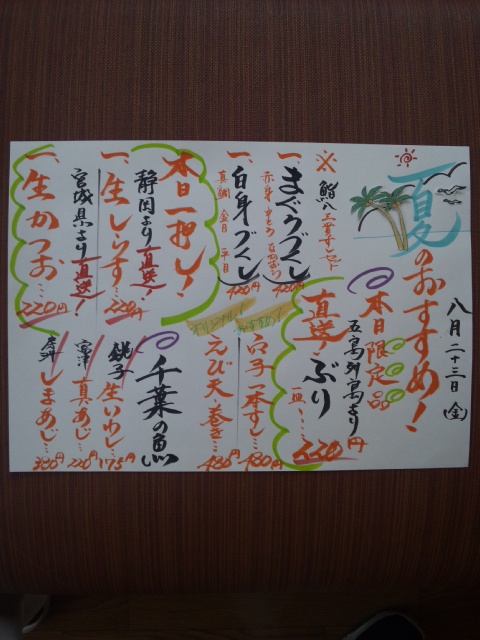 夏のおすすめ！
八月二十三日(金)
※鮨八三貫すしセット
一、まぐろづくし
赤身 中とろ
420円
一、白身づくし
真鯛 金目 平目
420円
本日一押し！
静岡より直送！
一、生しらす…220円
宮城県より直送！
一、生かつお…220円
本日限定品
五島列島より
直送ぶり
一皿…220円
穴子一本すし…480円
えび天巻き…480円
千葉の魚
銚子 生いわし…175円
富津 真あじ…220円
しまあじ…380円